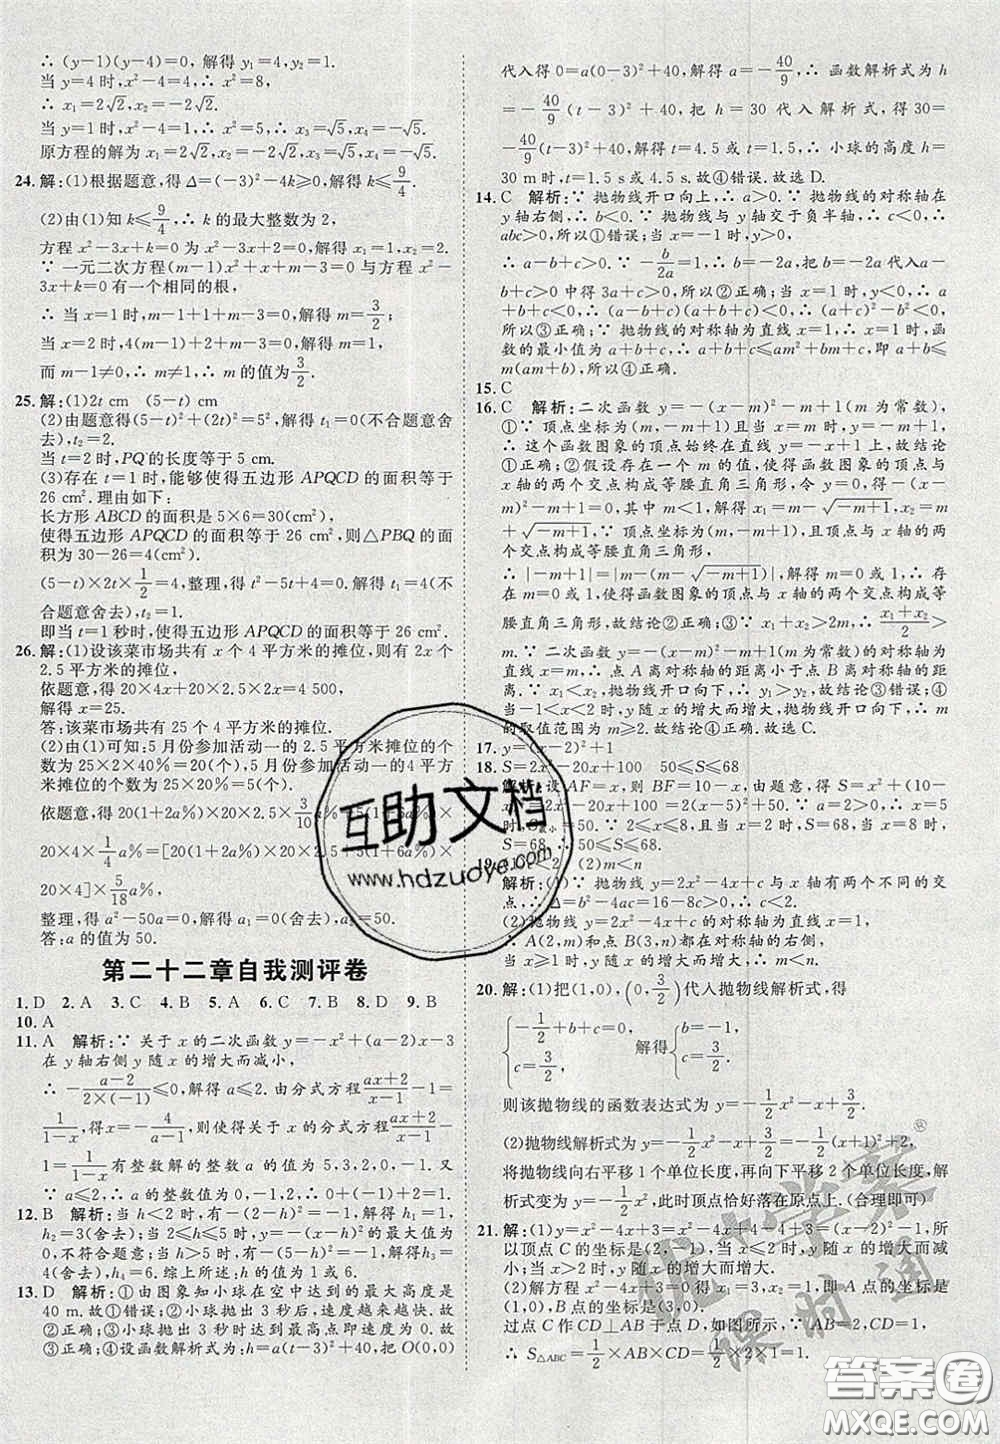 ∴ (y−1)(y−4)=0, 解得 y₁=4,y₂=1.
当 y=4 时,x²−4=4,∴ x²=8,
∴ x₁=2√2,x₂=−2√2.
当 y=1 时,x²−4=1,∴ x²=5,∴ x₃=√5,x₄=−√5.
原方程的解为 x₁=2√2,x₂=−2√2,x₃=√5,x₄=−√5.
24. 解:(1)根据题意,得 Δ=(−3)²−4k≥0,解得 k≤9/4.
(2)由(1)知 k≤9/4,∴ k 的最大整数为 2,
方程 x²−3x+k=0 为 x²−3x+2=0,解得 x₁=1,x₂=2.
∵ 一元二次方程(m−1)x²+x+m−3=0 与方程 x²−
3x+k=0 有一个相同的根,
∴ 当 x=1 时,m−1+1+m−3=0,解得 m=3/2;
当 x=2 时,4(m−1)+2+m−3=0,解得 m=1,
而 m−1≠0,∴ m 的值为 3/2.
25. 解:(1)2t cm (5−t) cm
(2)由题意得(5−t)²+(2t)²=5²,解得 t₁=0(不合题意舍
去),t₂=2.
当 t=2 时,PQ 的长度等于 5 cm.
(3)存在 t=1 时,能够使得五边形 APQCD 的面积等于
26 cm².理由如下:
长方形 ABCD 的面积是 5×6=30(cm²),
使得五边形 APQCD 的面积等于 26 cm²,则△PBQ 的面
积为 30−26=4(cm²),
(5−t)×2t×1/2=4,整理,得 t²−5t+4=0,解得 t₁=4(不
合题意舍去),t₂=1.
即当 t=1 秒时,使得五边形 APQCD 的面积等于 26 cm².
26. 解:(1)设该菜市场共有 x 个 4 平方米的摊位,则有 2x 个
2.5 平方米的摊位,
依题意,得 20×4x+20×2.5×2x=4 500,
解得 x=25.
答:该菜市场共有 25 个 4 平方米的摊位.
(2)由(1)可知:5 月份参加活动一的 2.5 平方米摊位的个数
为 25×2×40%=20(个),5 月份参加活动一的4 平方
米摊位的个数为 25×20%=5(个).
依题意,得 20(1+2a%)×20×2.5×3/10a%+5(1+a%)×
20×4×1/4a%=[20(1+2a%)×20×2.5+5(1+a%)×
20×4]×5/18a%,
整理,得 a²−50a=0,解得 a₁=0(舍去),a₂=50.
答:a 的值为 50.
第二十二章自我测评卷
1. D 2. A 3. C 4. B 5. A 6. C 7. B 8. D 9. B
10. A
11. A 解析:∵ 关于 x 的二次函数 y=−x²+(a−2)x−3
在 y 轴右侧 y 随 x 的增大而减小,
∴ −(a−2)/(2×(−1))≤0,解得 a≤2.由分式方程(ax+2)/(1−x)−1=
1/(1−x),得 x=−2/(a+1),则使得关于 x 的分式方程(ax+2)/(1−x)−
1=1/(1−x)有整数解的 a 的值为−3,−2,0,1.
∵ a≤2,∴ a 的整数值之和为
12. B 解析:当 h<2 时,有−(2−h)²=−1,解得 h₁=1,
h₂=3(舍去);当 2≤h≤5 时,y=−(x−h)²的最大值为
0,不符合题意;当 h>5 时,有−(5−h)²=−1,解得 h₃=
4(舍去),h₄=6.综上所述:h 的值为 1 或 6.
13. D 解析:①由图象知小球在空中达到的最大高度是
40 m.故①错误;②小球抛出 3 秒后,速度越来越快.故②
正确;③小球抛出 3 秒时达到最高点即速度为 0.故③
正确;④设函数解析式为 h=a(t−3)²+40,把 O(0,0)
代入得 0=a(0−3)²+40,解得 a=−40/9,∴ 函数解析式为 h
=−40/9(t−3)²+40,把 h=30 代入解析式,得 30=
−40/9(t−3)²+40,解得 t=4.5 或 t=1.5,∴ 小球的高度 h=
30 m 时,t=1.5 s 或 4.5 s.故④错误.故选 D.
14. C 解析:∵ 抛物线开口向上,∴ a>0.∵ 抛物线的对称轴在
y 轴右侧,∴ b<0.∵ 抛物线与 y 轴交于负半轴,∴ c<0,∴
abc>0,所以①错误;当 x=−1 时,y>0,∴ a−b+c>0.
∵ −b/2a=1,∴ b=−2a.把 b=−2a 代入a−
b+c>0 中得 3a+c>0,所以②正确;当 x=1 时,y<0,∴
a+b+c<0,∴ (a+b+c)(a+c−b)<0,∴ (a+c)²−b²<0,
所以③正确;∵ 抛物线的对称轴为直线 x=1,∴ x=1 时,函
数的最小值为 a+b+c,∴ a+b+c≤am²+bm+c,即 a+b≤
m(am+b),所以④正确.
15. C
16. C 解析:二次函数 y=−(x−m)²−m+1(m 为常数),
①∵ 顶点坐标为(m,−m+1)且当 x=m 时,y=−m+1,
∴ 这个函数图象的顶点始终在直线 y=−x+1 上,故结论
①正确;②假设存在一个 m 的值,使得函数图象的顶点与 x 轴
的两个交点构成等腰直角三角形,
令 y=0,得−(x−m)²−m+1=0,解得 x₁=m−√(−m+1),x₂=m
+√(−m+1).∵ 顶点坐标为(m,−m+1),且顶点与 x 轴的
两个交点构成等腰直角三角形,
∴ |−m+1|=|m−(m−√(−m+1))|,解得 m=0 或 1,∴ 存
在 m=0 或 1,使得函数图象的顶点与 x 轴的两个交点构成等
腰直角三角形,故结论②正确;③∵ x₁+x₂>2m,∴ (x₁+x₂)/2
>m.∵ 二次函数 y=−(x−m)²−m+1(m 为常数)的对称轴为
直线 x=m,∴ 点 A 离对称轴的距离小于点 B 离对称轴的距
离.∵ x₁<x₂,抛物线开口向下,∴ y₁>y₂,故结论③错误;④
当−1<x<2 时,y 随 x 的增大而增大,抛物线开口向下,∴ m
的取值范围为 m≥2.故结论④正确.故选 C.
17. y=(x−2)²+1
18. S=2x²−20x+100 50≤S≤68
解析:设 AF=x,则 BF=10−x.由题意,得 S=x²+(10−
x)²=2x²−20x+100=2(x−5)²+50.∵ 2≤x≤8,∴ 当 x=5
时,S最小=50.∵ 2≤x≤8 且 x 为正数,∴ 当 x=2 或 x=8 时,
S=68.∴ 50≤S≤68.
19. (1)c<2 (2)m<n
解析:(1)∵ 抛物线 y=2x²−4x+c 与 x 轴有两个不同的交
点,∴ Δ=b²−4ac=16−8c>0,∴ c<2.
(2)抛物线 y=2x²−4x+c 的对称轴为直线 x=1,
∴ A(2,m)和点 B(3,n)都在对称轴的右侧.
∵ 当 x≥1 时,y 随 x 的增大而增大,∴ m<n.
20. 解:(1)把(1,0),(0,3/2)代入抛物线解析式,得
{−1/2+b+c=0, c=3/2, 解得{b=−1, c=3/2.
则该抛物线的函数表达式为 y=−1/2x²−x+3/2.
(2)抛物线解析式为 y=−1/2x²−x+3/2=−1/2(x+1)²+2,
将抛物线向右平移 1 个单位长度,再向下平移 2 个单位长度,解
析式变为 y=−1/2x²,此时顶点恰好落在原点上.(合理即可)
21. 解:(1)y=x²−4x+3=x²−4x+4−4+3=(x−2)²−1,所
以顶点 C 的坐标是(2,−1),当 x≤2 时,y 随 x 的增大而减
小;当 x>2 时,y 随 x 的增大而增大.
(2)解方程 x²−4x+3=0,得 x₁=3,x₂=1,即A 点的坐标是
(1,0),B 点的坐标是(3,0).
过点 C 作 CD⊥AB 于点 D,如图所示,∵ AB=2,CD=1,
∴ S△ABC=1/2×AB×CD=1/2×2×1=1.
互助文档
www.hdzuoye.com
课时通
答案圈
MXQE.COM